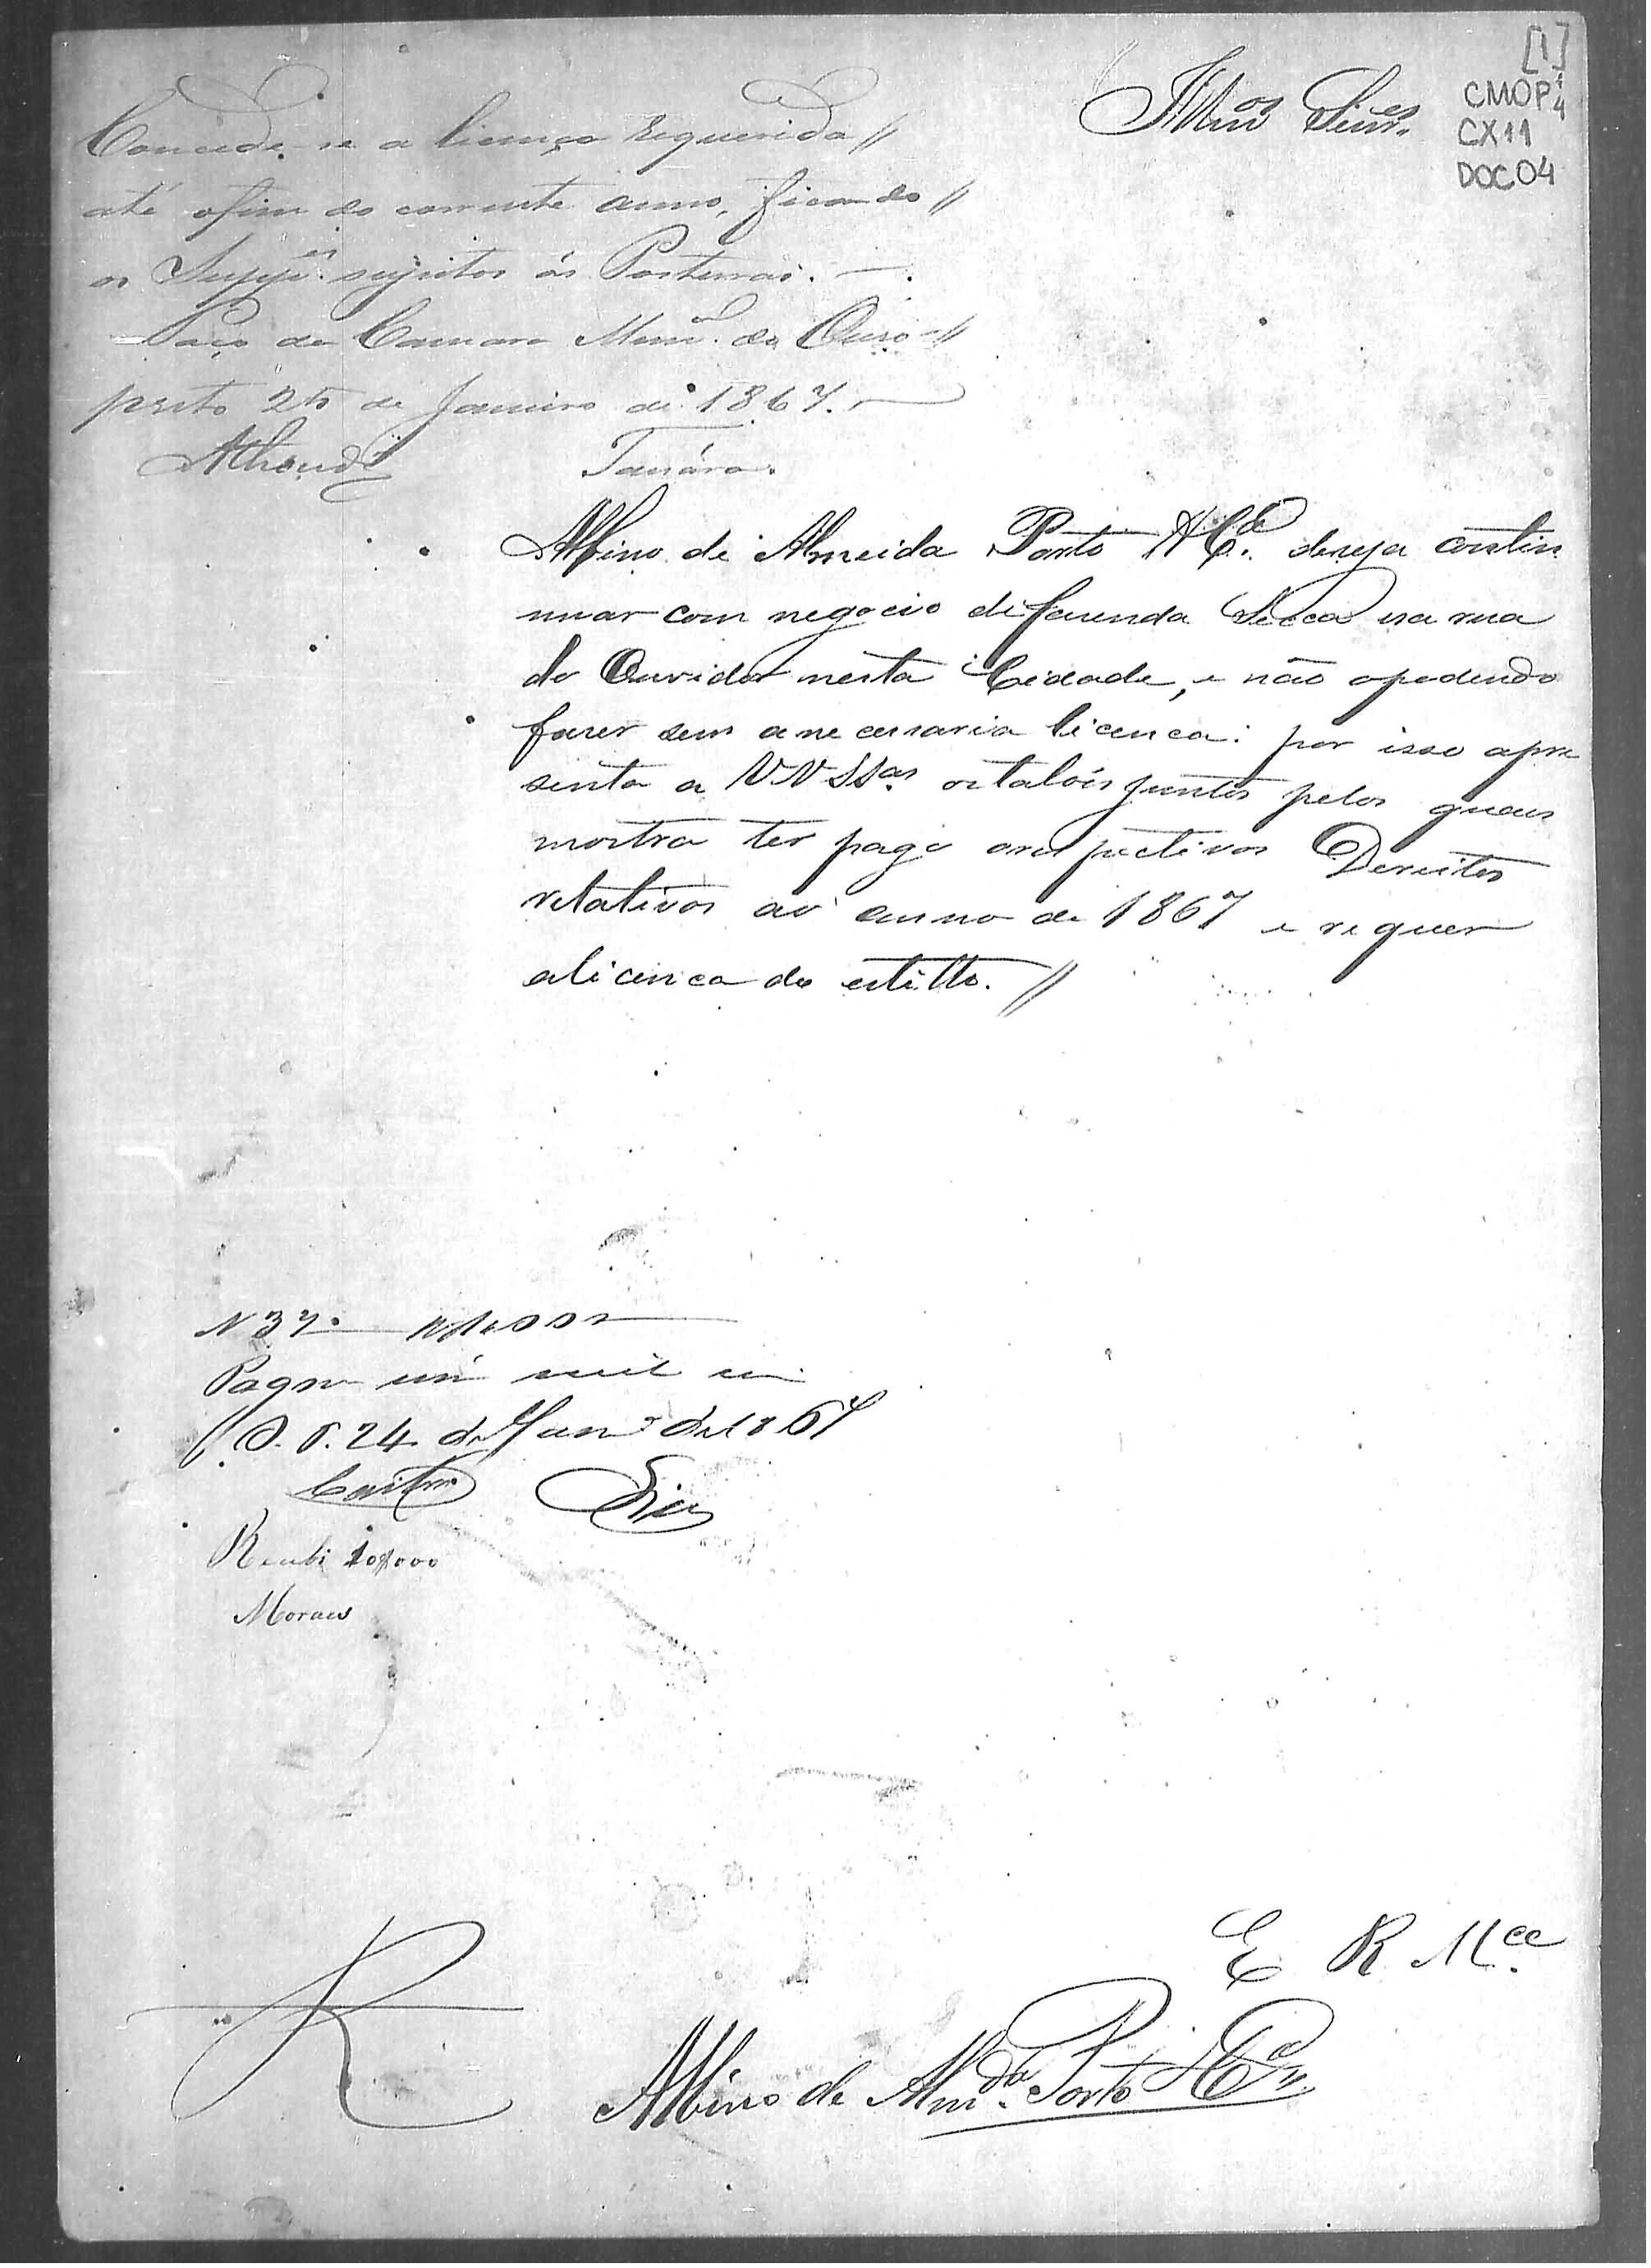 [1]
CMOP
CX11
DOC04
Illmos Senres
Concede-se a licença requerida //
até o fim do corrente anno, ficando //
os Suppes sujeitos ás Posturas. —
Paço da Camara Munal do Ouro //
preto 25 de Janeiro de 1867.
Albino de Almeida Porto & Ca. deseja contin
nuar com negocio de fazenda Secca na rua
do Ouvidor nesta Cidade, e não opodendo
fazer sem a necessaria licenca: por isso apre
senta a VV SSas os talóis juntos pelos quaes
mostra ter pago os respectivos Dereitos
relativos ao anno de 1867 e requer
alicenca do estillo. //
N 37
Pagou um mil rs
O. P. 24 de Janro de 1867
Castro Dias
Recebi 10$000
Moraes
E R Mce
Albino de Almda Porto & Ca